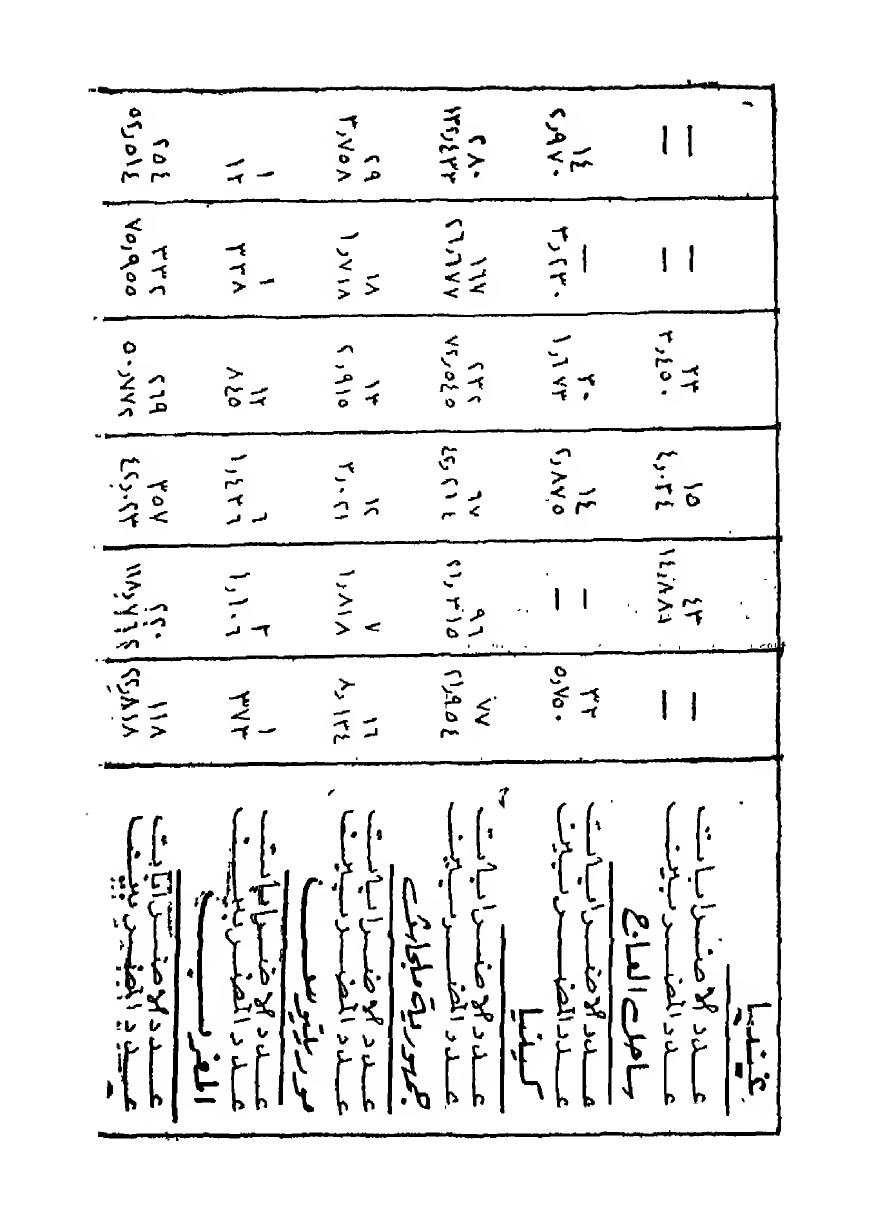 غينيا
عدد الاضرابات — ٤٣ ١٥ ٢٣ — —
عدد المضربين — ١٤,٨٨٦ ٤,٠٣٤ ٣,٤٥٠ — —
ساحل العاج
عدد الاضرابات ٣٢ — ١٤ ٣٠ — ١٤
عدد المضربين ٥,٧٥٠ — ٢,٨٧٥ ١,٦٧٣ ٣,٢٣٠ ٢,٩٧٠
كينيا
عدد الاضرابات ٧٧ ٩٦ ٦٧ ٢٣٢ ١٦٧ ٢٨٠
عدد المضربين ٢١,٩٥٤ ٢١,٣١٥ ٧٢,٥٤٥ ٢٦,٦٧٧ ١٣٢,٤٣٣
جمهورية ملجاش
عدد الاضرابات ١٦ ٧ ١٢ ١٣ ١٨ ٢٩
عدد المضربين ٨,١٣٤ ١,٨١٨ ٣,٠٢١ ٢,٩١٥ ١,٧١٨ ٣,٧٥٨
موريتيوس
عدد الاضرابات ١ ٣ ١٢ ١ ١
عدد المضربين ٣٧٣ ١,١٠٦ ١,٤٣٦ ٨٤٥ ٣٣٨ ١٣
المغرب
عدد الاضرابات ١١٨ ٢٢٠ ٣٥٧ ٢٦٩ ٣٣٢ ٢٥٤
عدد المضربين ٢٢,٨١٨ ٤٢,٠٢٣ ٥٠,٨٧٢ ٧٥,٩٥٥ ٥٢,٥١٤